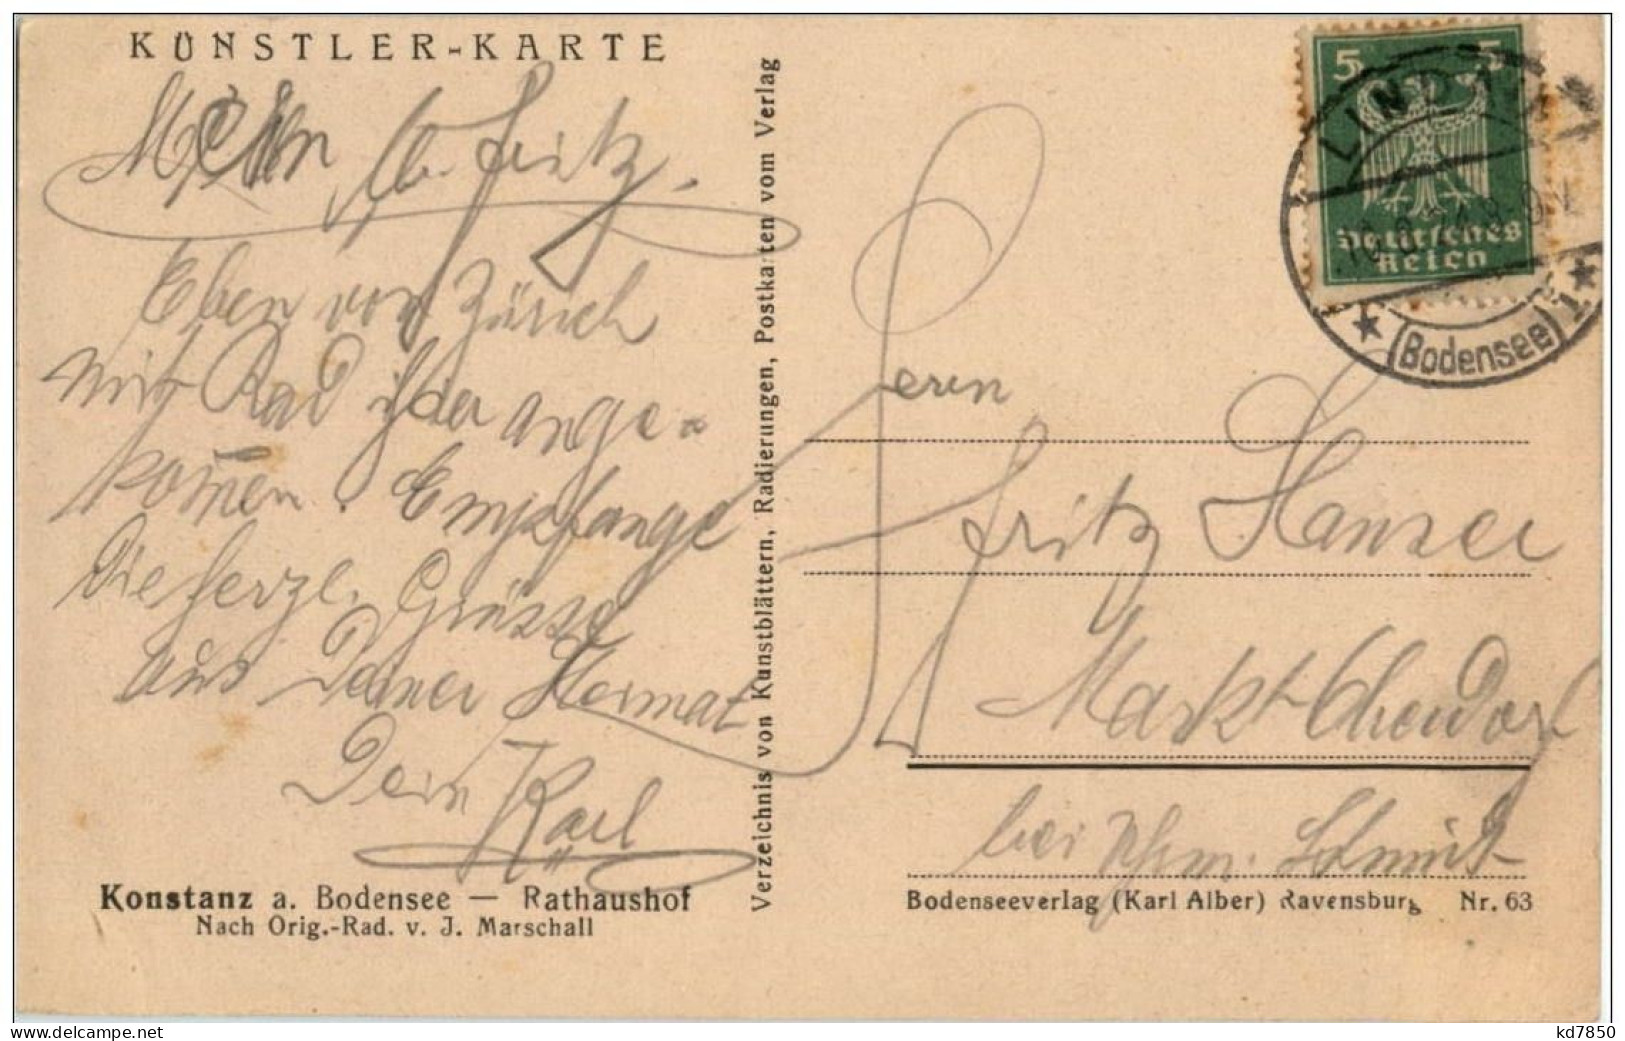 KÜNSTLER-KARTE
Mein lb. Fritz.
Eben von Zürich
mit Rad hier ange-
kommen. Empfange
die herzl. Grüsse
aus Deiner Heimat
Dein
Karl
Konstanz a. Bodensee — Rathaushof
Nach Orig.-Rad. v. J. Marschall
Verzeichnis von Kunstblättern, Radierungen, Postkarten vom Verlag
5 5
Deutsches
Reich
LINDAU
(Bodensee)
Herrn
Fritz Hanser
Markt Oberdorf
bei Schmidt
Bodenseeverlag (Karl Alber) Ravensburg Nr. 63
kd7850